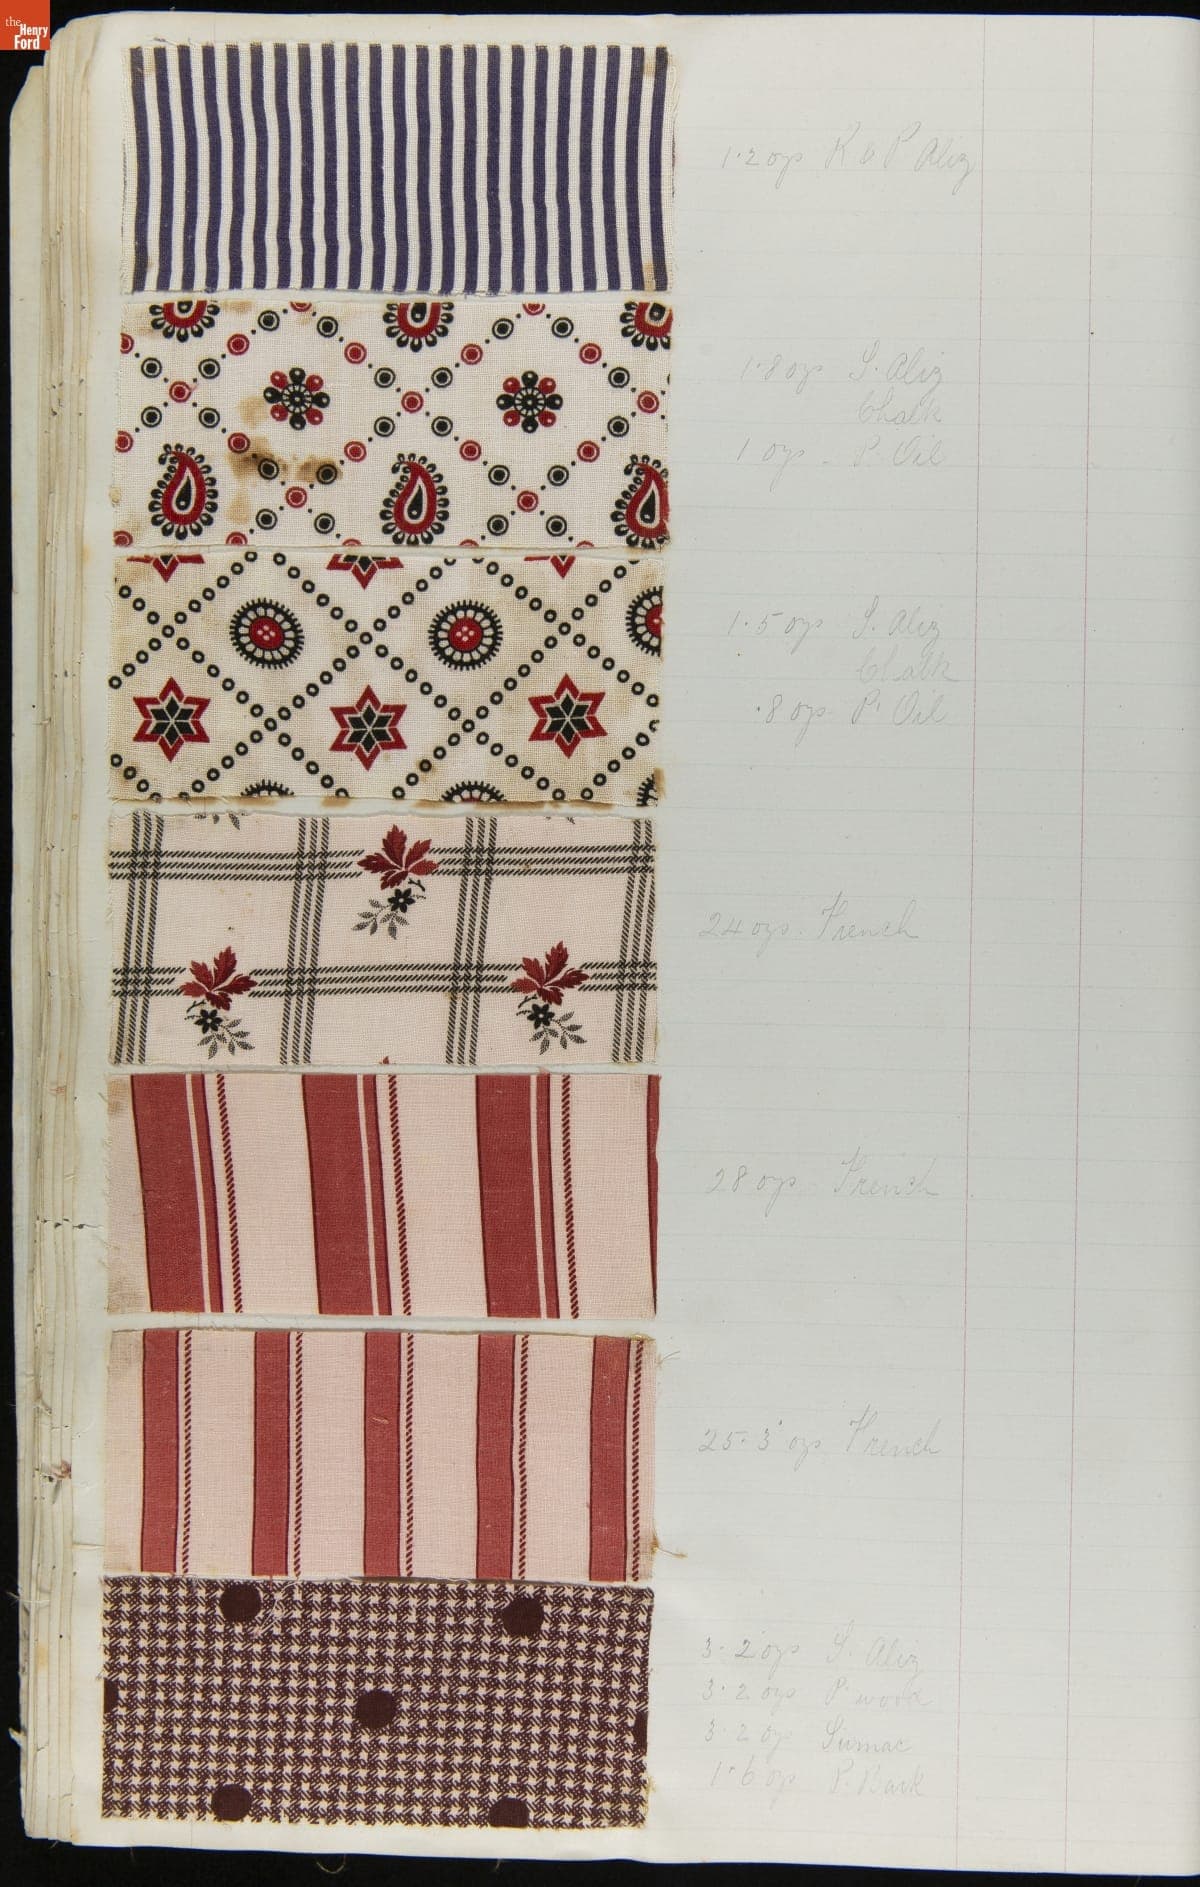 the
Henry
Ford
1.2 ozs K & P Aliz
1.8 ozs S. Aliz
Chalk
1 ozs. P. Oil
1.5 ozs S. Aliz
Chalk
.8 ozs P. Oil
24 ozs. French
28 ozs French
25.3 ozs French
3.2 ozs S. Aliz
3.2 ozs P. wood
3.2 oz Sumac
1.6 oz P. Bark